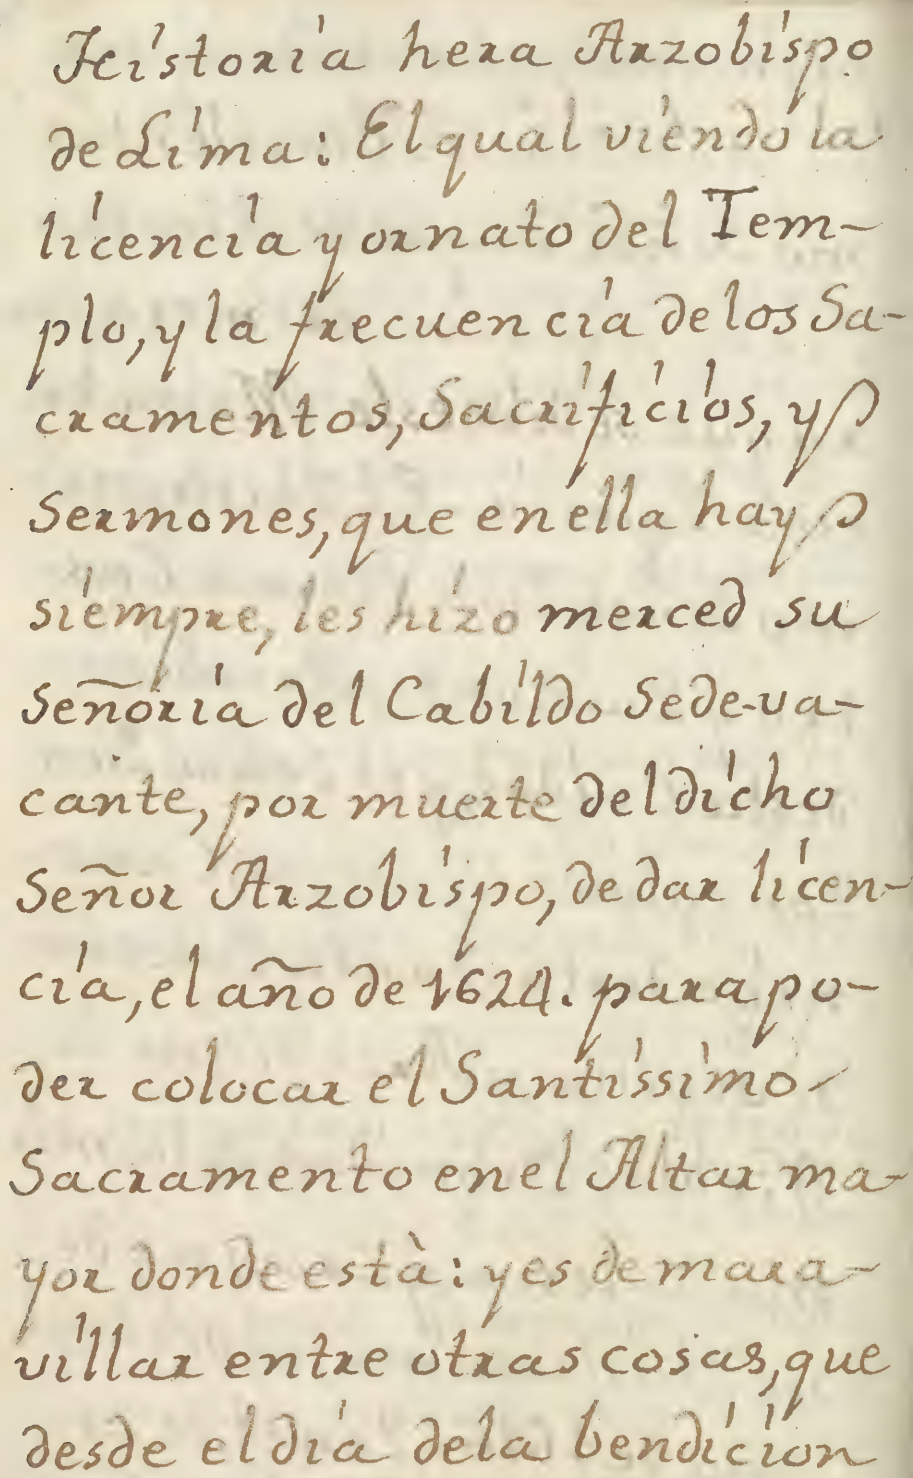 Historia hera Arzobispo
de Lima: El qual viendo la
licencia y ornato del Tem-
plo, y la frecuencia de los Sa-
cramentos, Sacrificios, y
Sermones, que en ella hay
siempre, les hizo merced su
Señoria del Cabildo Sede-va-
cante, por muerte del dicho
Señor Arzobispo, de dar licen-
cia, el año de 1624. para po-
der colocar el Santissimo
Sacramento en el Altar ma-
yor donde està: y es de mara-
villar entre otras cosas, que
desde el dia de la bendicion